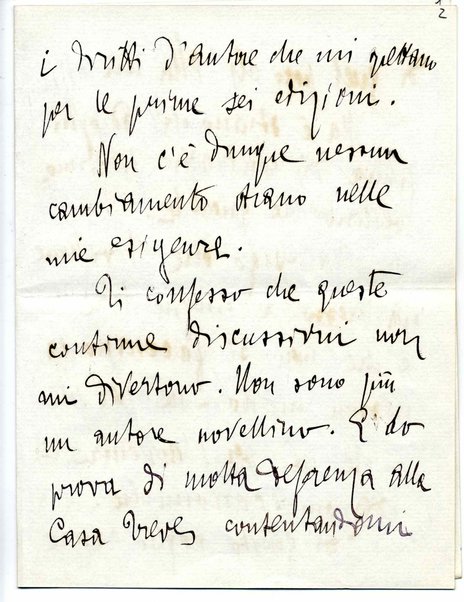 1/2
i diritti d'autore che mi spettano
per le prime sei edizioni.
Non c'è dunque nessun
cambiamento strano nelle
mie esigenze.
Ti confesso che queste
continue discussioni non
mi divertono. Non sono più
un autore novellino. E do
prova di molta deferenza alla
Casa Treves contentandomi